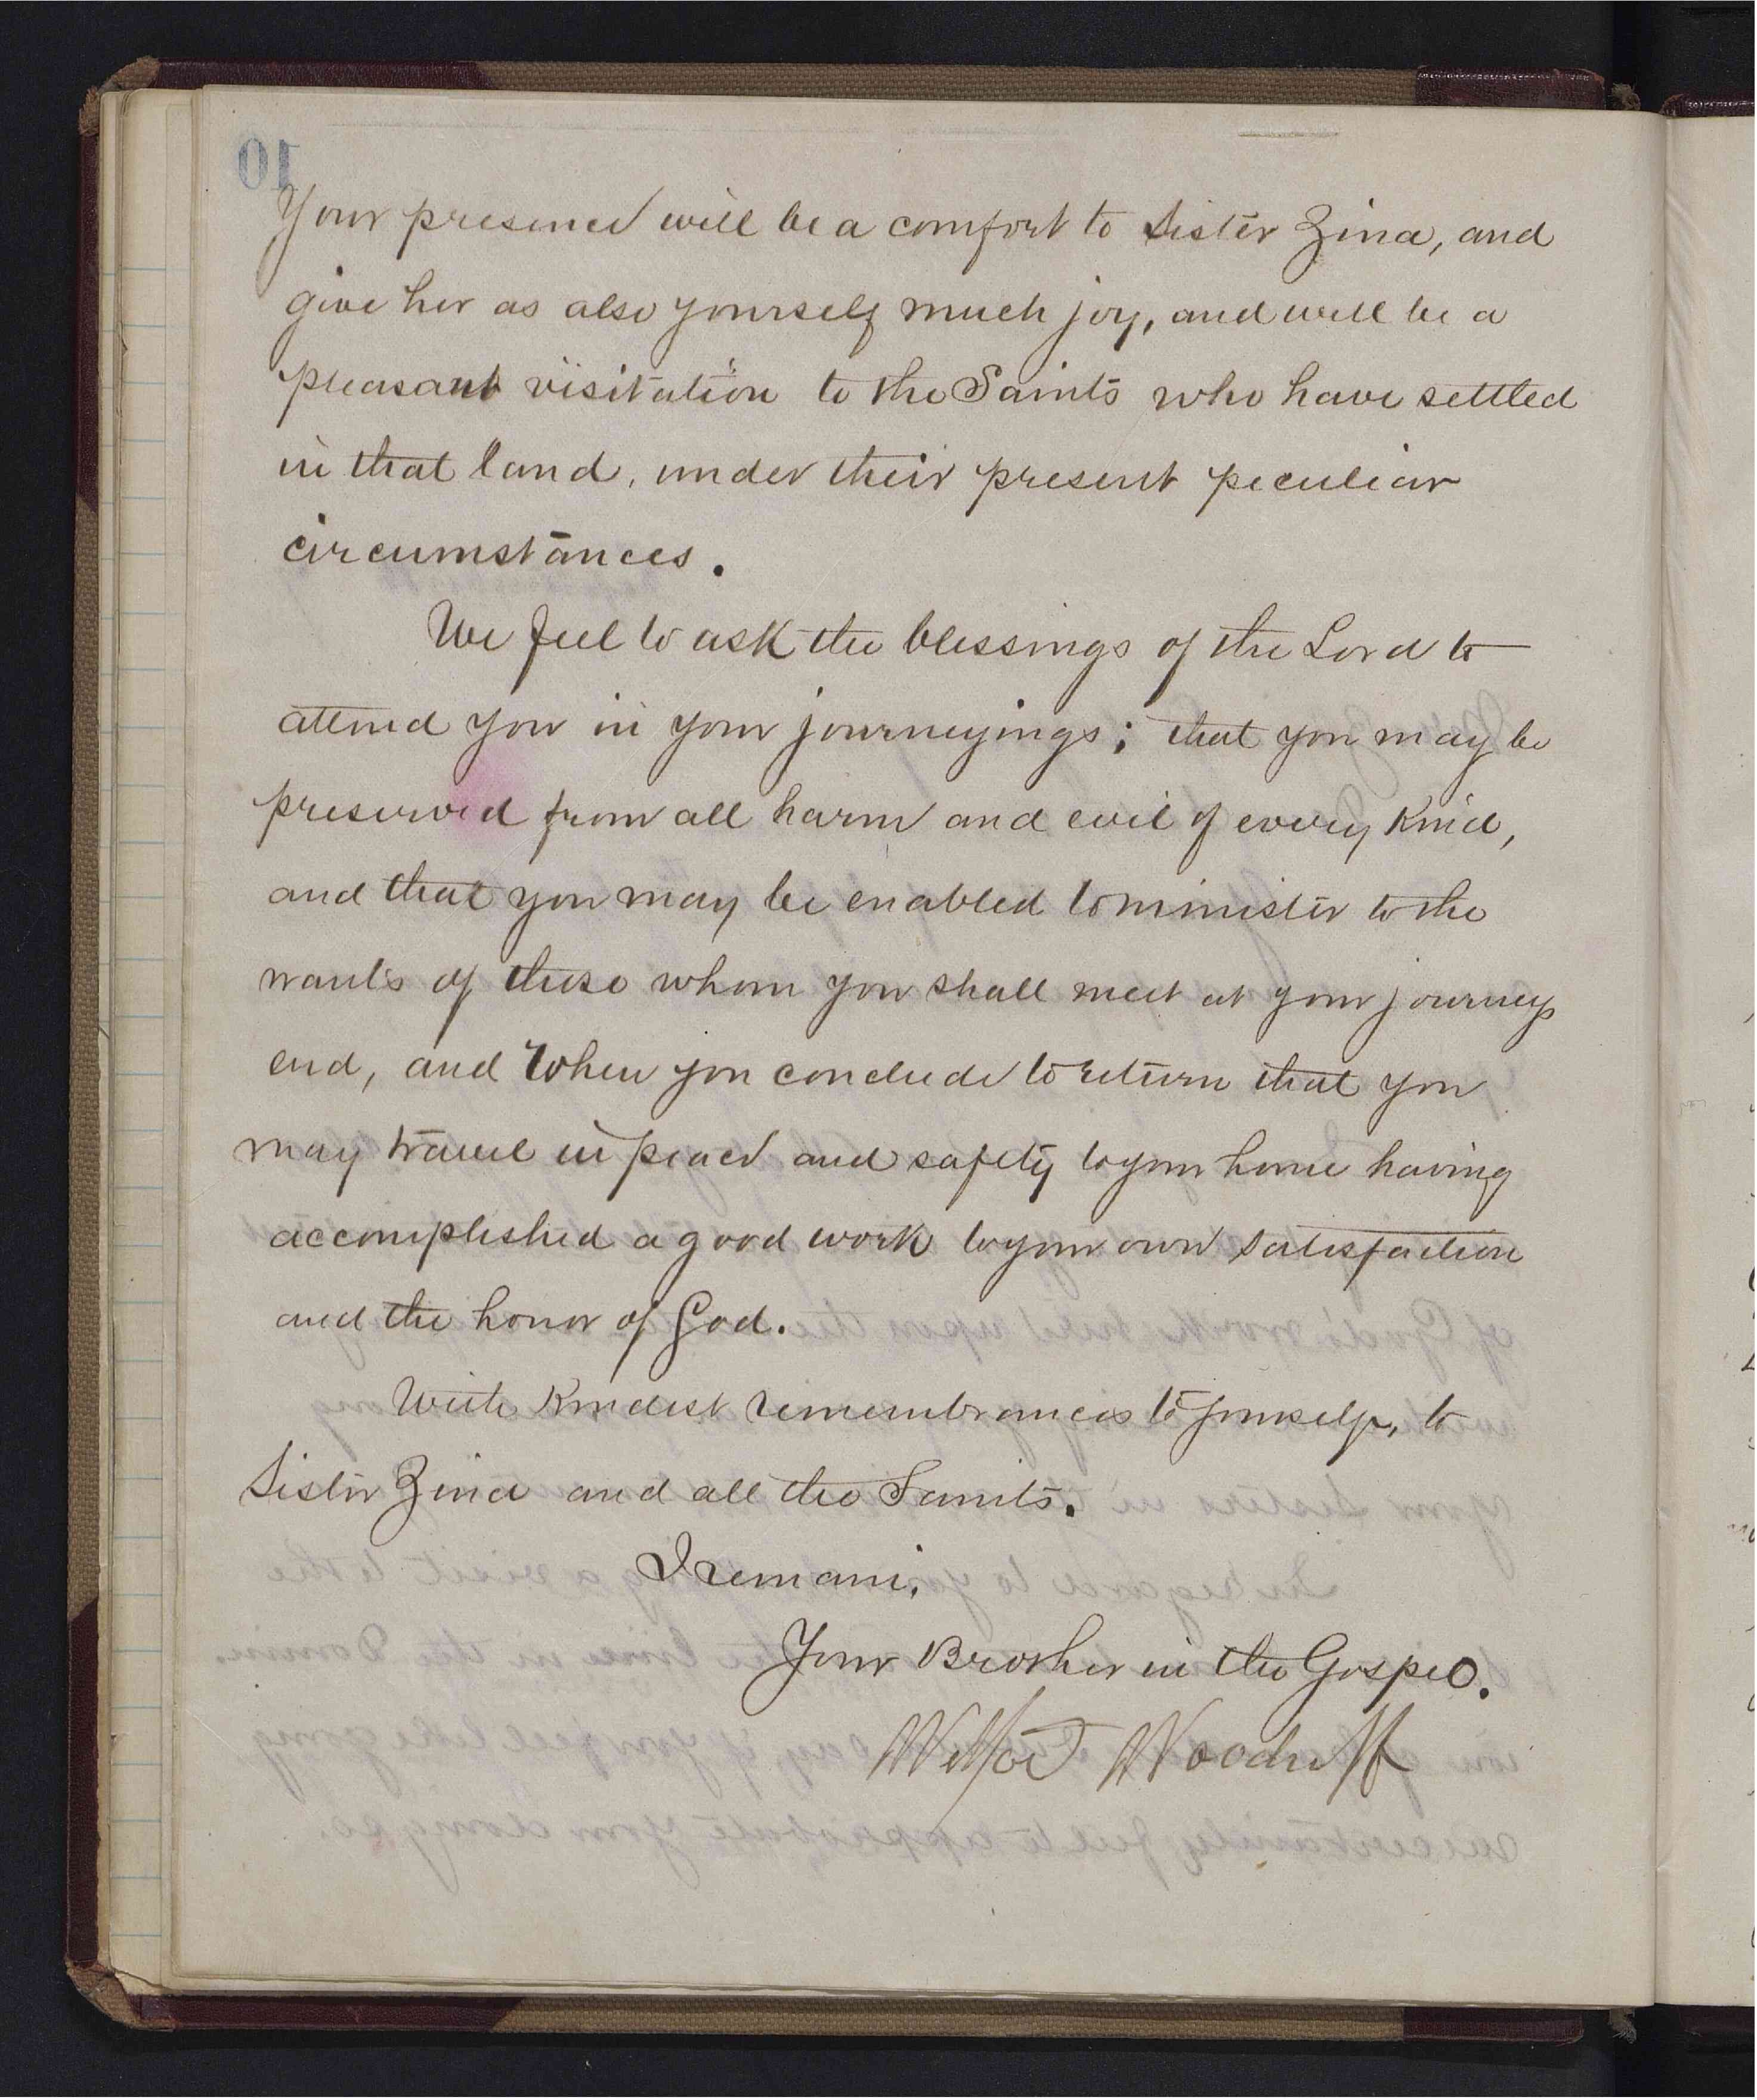 10
Your presence will be a comfort to Sister Zina, and
give her as also yourself much joy, and will be a
pleasant visitation to the Saints who have settled
in that land, under their present peculiar
circumstances.
We feel to ask the blessings of the Lord to
attend you in your journeyings; that you may be
preserved from all harm and evil of every kind,
and that you may be enabled to minister to the
wants of those whom you shall meet at your journeys
end, and when you conclude to return that you
may travel in peace and safety to your home having
accomplished a good work to your own satisfaction
and the honor of God.
With kindest remembrances to yourself, to
Sister Zina and all the Saints.
I remain,
Your Brother in the Gospel.
Wilford Woodruff